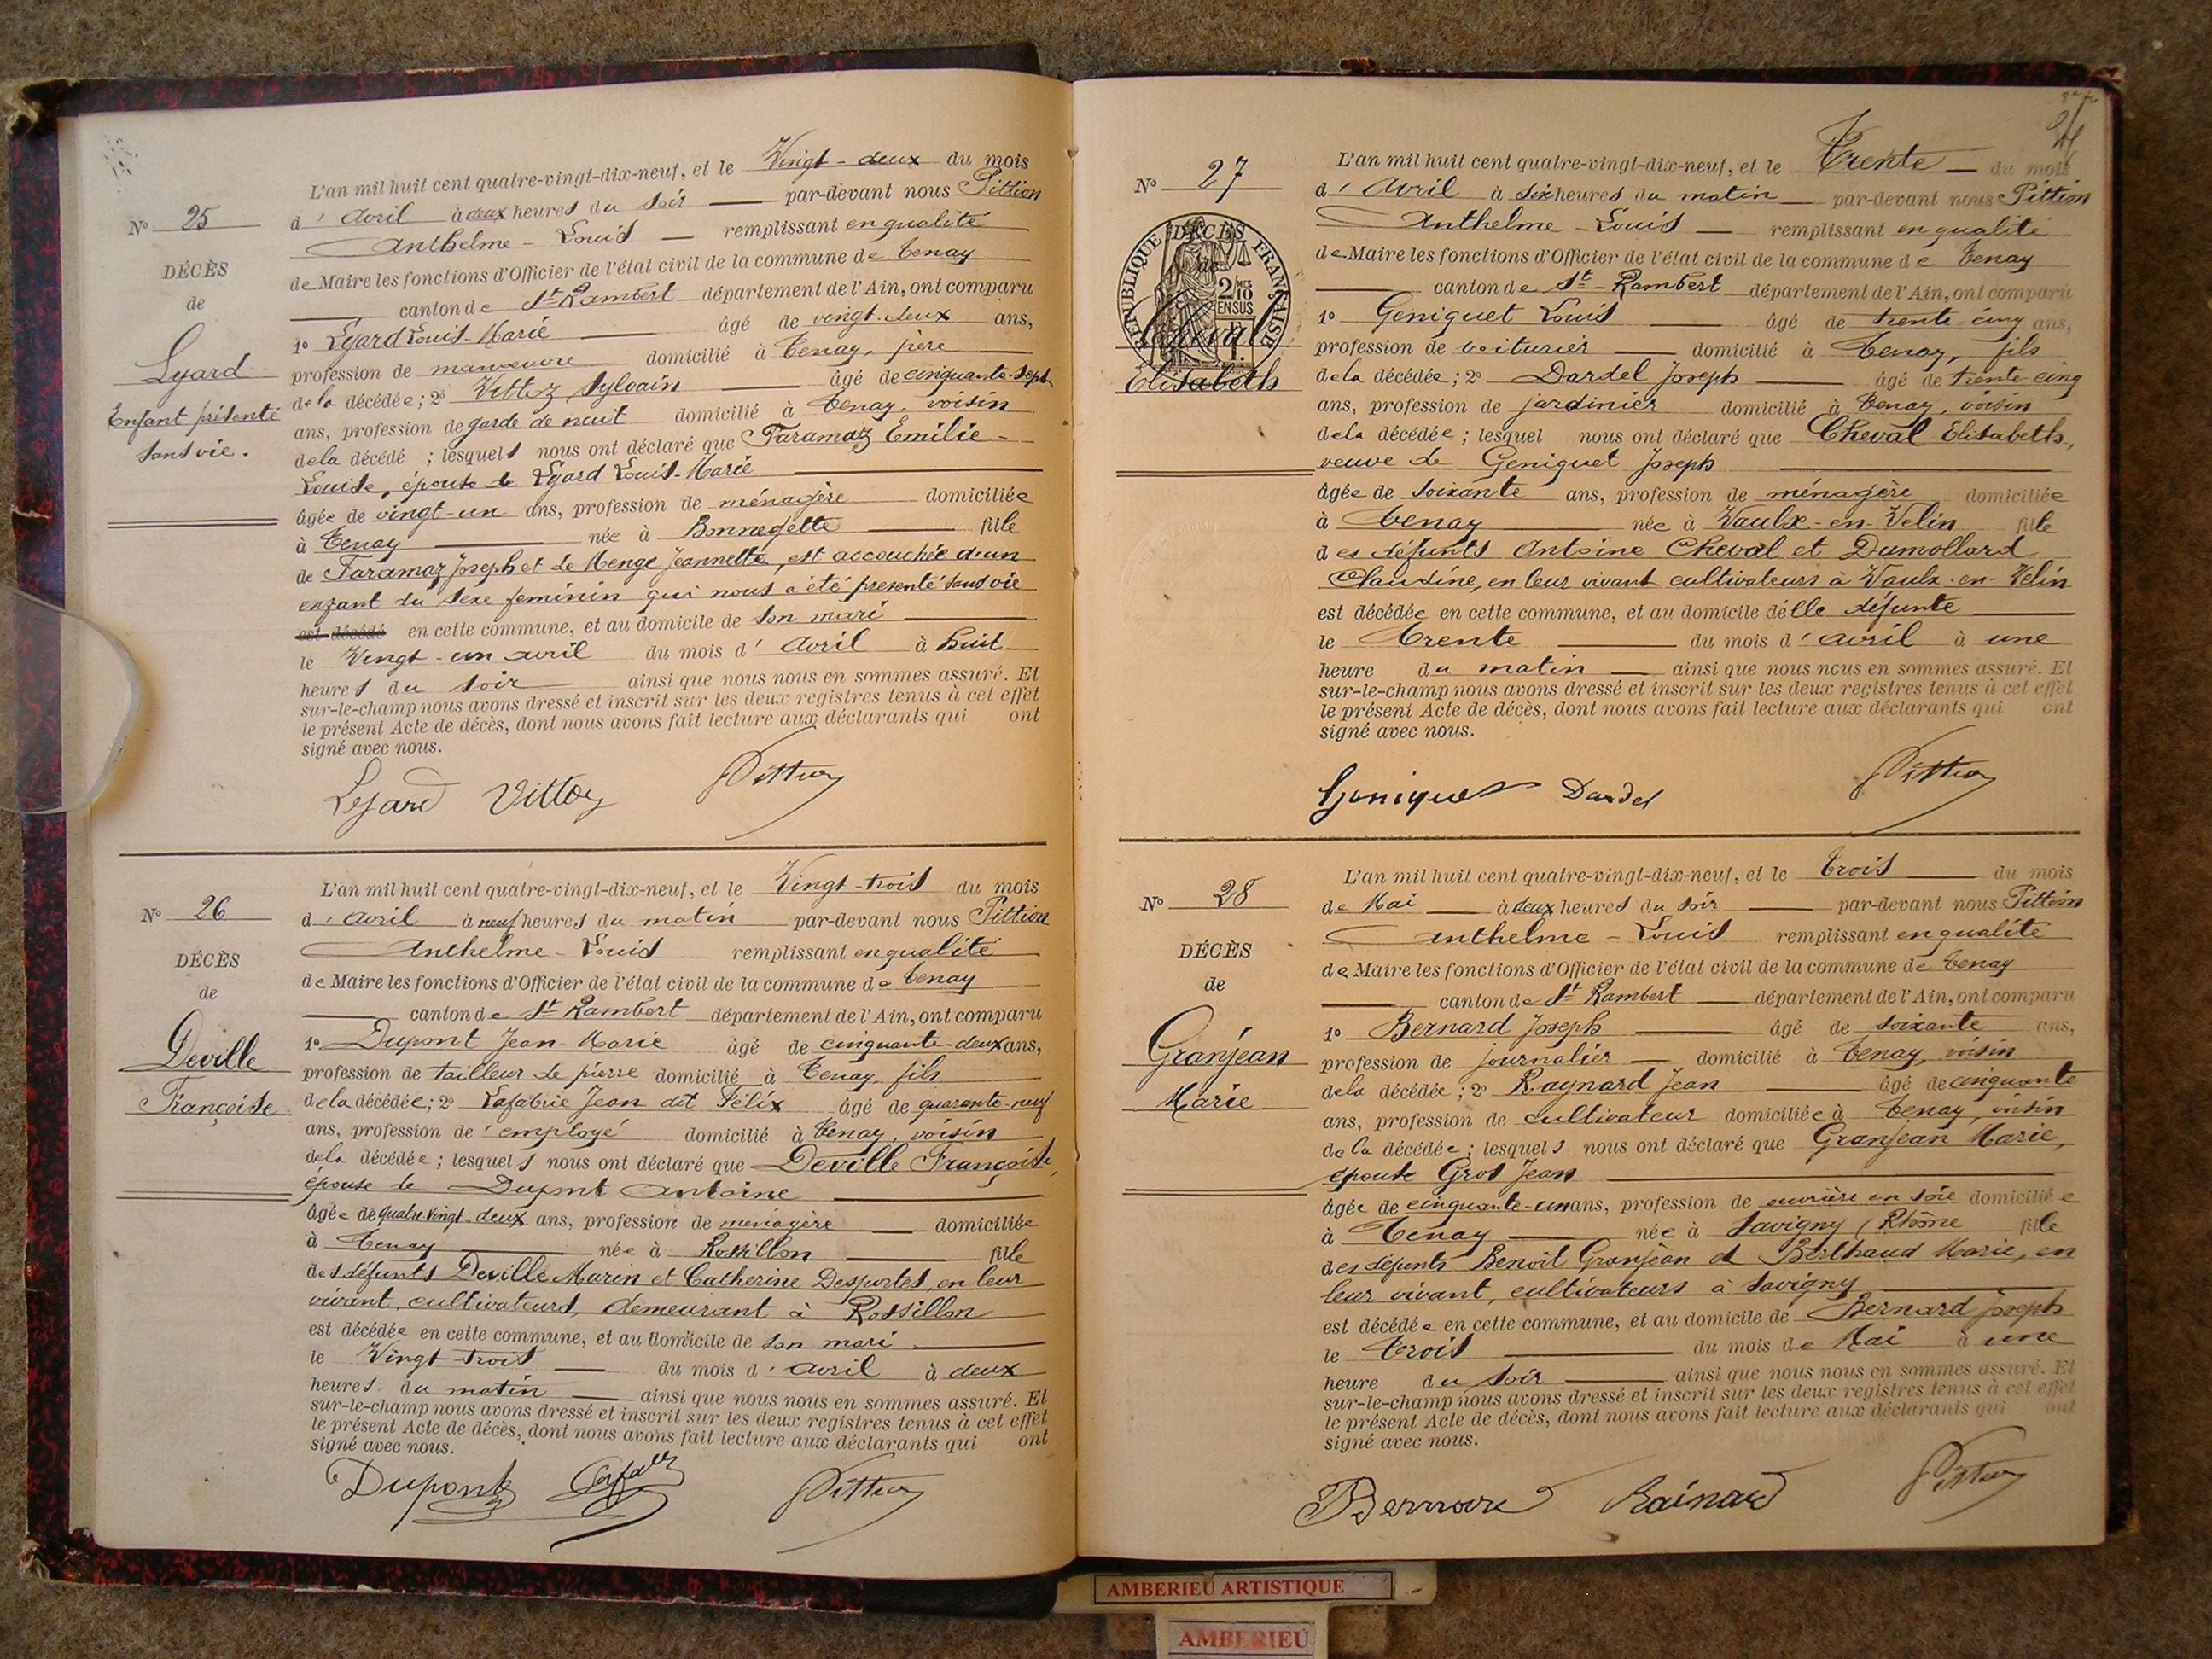 N° 25
DÉCÈS
de
Lyard
Enfant présenté
sans vie.
L'an mil huit cent quatre-vingt-dix-neuf, et le Vingt-deux du mois
d'Avril à deux heures du soir par-devant nous Pittion
Anthelme-Louis remplissant en qualité
de Maire les fonctions d'Officier de l'état civil de la commune de Tenay
canton de St Rambert département de l'Ain, ont comparu
1° Lyard Louis-Marie âgé de vingt-deux ans,
profession de manœuvre domicilié à Tenay, père
de la décédée; 2° Vittoz Sylvain âgé de cinquante-sept
ans, profession de garde de nuit domicilié à Tenay, voisin
de la décédé ; lesquels nous ont déclaré que Faramaz Emilie-
Louise, épouse de Lyard Louis-Marie
âgée de vingt-un ans, profession de ménagère domiciliée
à Tenay née à Bonnegette fille
de Faramaz Joseph et de Menge Jeannette, est accouchée d'un
enfant du sexe féminin qui nous a été présenté sans vie
est décédé en cette commune, et au domicile de son mari
le Vingt-un avril du mois d'Avril à huit
heures du soir ainsi que nous nous en sommes assuré. Et
sur-le-champ nous avons dressé et inscrit sur les deux registres tenus à cet effet
le présent Acte de décès, dont nous avons fait lecture aux déclarants qui ont
signé avec nous.
Lyard Vittoz Pittion
N° 26
DÉCÈS
de
Deville
Françoise
L'an mil huit cent quatre-vingt-dix-neuf, et le Vingt-trois du mois
d'avril à neuf heures du matin par-devant nous Pittion
Anthelme-Louis remplissant en qualité
de Maire les fonctions d'Officier de l'état civil de la commune de Tenay
canton de St Rambert département de l'Ain, ont comparu
1° Dupont Jean-Marie âgé de cinquante-deux ans,
profession de tailleur de pierre domicilié à Tenay, fils
de la décédée; 2° Lafabrie Jean dit Félix âgé de quarante-neuf
ans, profession de employé domicilié à Tenay, voisin
de la décédée; lesquels nous ont déclaré que Deville Françoise,
épouse de Dupont Antoine
âgée de quatre vingt-deux ans, profession de ménagère domiciliée
à Tenay née à Rossillon fille
des défunts Deville Marin et Catherine Desportes, en leur
vivant, cultivateurs, demeurant à Rossillon
est décédée en cette commune, et au domicile de son mari
le Vingt-trois du mois d'avril à deux
heures du matin ainsi que nous nous en sommes assuré. Et
sur-le-champ nous avons dressé et inscrit sur les deux registres tenus à cet effet
le présent Acte de décès, dont nous avons fait lecture aux déclarants qui ont
signé avec nous.
Dupont Pittion
N° 27
RÉPUBLIQUE FRANÇAISE
DÉCÈS
de
2/10 MES
EN SUS
Cheval
Elisabeth
L'an mil huit cent quatre-vingt-dix-neuf, et le Trente du mois
d'Avril à six heures du matin par-devant nous Pittion
Anthelme-Louis remplissant en qualité
de Maire les fonctions d'Officier de l'état civil de la commune de Tenay
canton de St-Rambert département de l'Ain, ont comparu
1° Geniquet Louis âgé de trente cinq ans,
profession de voiturier domicilié à Tenay, fils
de la décédée; 2° Dardel Joseph âgé de trente-cinq
ans, profession de jardinier domicilié à Tenay, voisin
de la décédée; lesquel nous ont déclaré que Cheval Elisabeth,
veuve de Geniquet Joseph
âgée de soixante ans, profession de ménagère domiciliée
à Tenay née à Vaulx-en-Velin fille
des défunts Antoine Cheval et Dumollard
Claudine, en leur vivant cultivateurs à Vaulx-en-Velin
est décédée en cette commune, et au domicile d'elle défunte
le Trente du mois d'avril à une
heure du matin ainsi que nous nous en sommes assuré. Et
sur-le-champ nous avons dressé et inscrit sur les deux registres tenus à cet effet
le présent Acte de décès, dont nous avons fait lecture aux déclarants qui ont
signé avec nous.
Geniquet Dardel Pittion
N° 28
DÉCÈS
de
Granjean
Marie
L'an mil huit cent quatre-vingt-dix-neuf, et le Trois du mois
de Mai à deux heures du soir par-devant nous Pittion
Anthelme-Louis remplissant en qualité
de Maire les fonctions d'Officier de l'état civil de la commune de Tenay
canton de St Rambert département de l'Ain, ont comparu
1° Bernard Joseph âgé de soixante ans,
profession de journalier domicilié à Tenay, voisin
de la décédée; 2° Raynard Jean âgé de cinquante
ans, profession de cultivateur domiciliée à Tenay, voisin
de la décédée; lesquels nous ont déclaré que Granjean Marie,
épouse Gros Jean
âgée de cinquante-un ans, profession de ouvrière en soie domiciliée
à Tenay née à Savigny (Rhône fille
des défunts Benoît Granjean et Berthaud Marie, en
leur vivant, cultivateurs à Savigny
est décédée en cette commune, et au domicile de Bernard Joseph
le Trois du mois de Mai à une
heure du soir ainsi que nous nous en sommes assuré. Et
sur-le-champ nous avons dressé et inscrit sur les deux registres tenus à cet effet
le présent Acte de décès, dont nous avons fait lecture aux déclarants qui ont
signé avec nous.
Bernard Rainard Pittion
AMBERIEU ARTISTIQUE
AMBERIEU